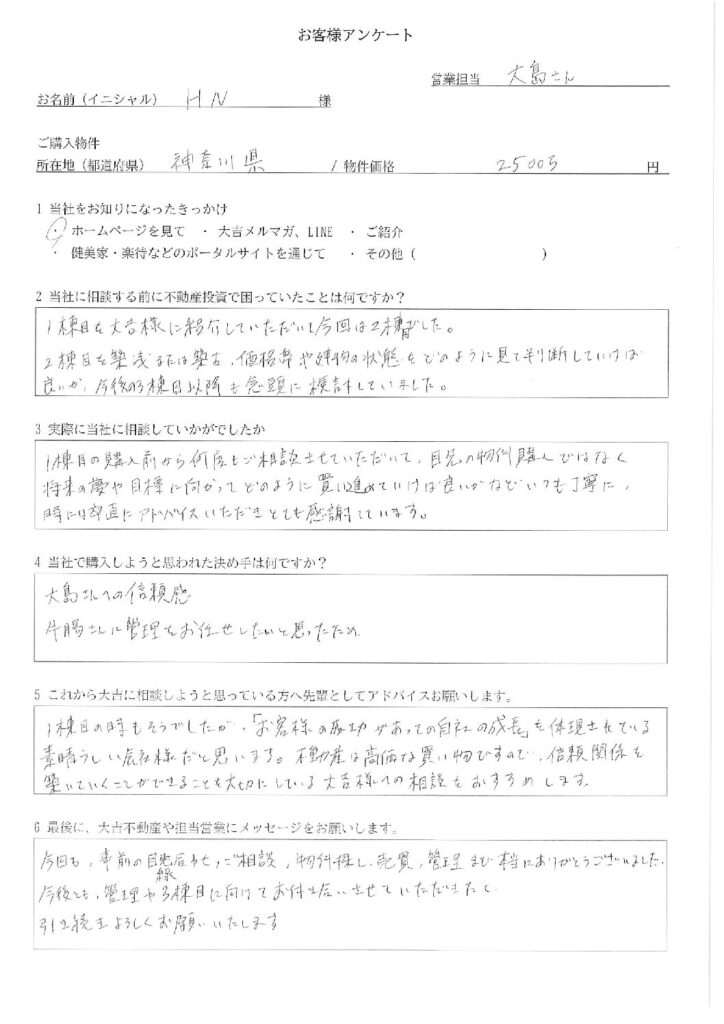 お客様アンケート
営業担当 大島さん
お名前（イニシャル） HN 様
ご購入物件
所在地（都道府県） 神奈川県 / 物件価格 2500万 円
1 当社をお知りになったきっかけ
・ ホームページを見て ・ 大吉メルマガ、LINE ・ ご紹介
・ 健美家・楽待などのポータルサイトを通じて ・ その他（ ）
2 当社に相談する前に不動産投資で困っていたことは何ですか？
1棟目を大吉様に紹介していただいて今回は2棟目でした。
2棟目を築浅または築古、価格帯や建物の状態をどのように見て判断していけば
良いか、今後の3棟目以降も念頭に検討していました。
3 実際に当社に相談していかがでしたか
1棟目の購入前から何度もご相談させていただいて、目先の物件購入ではなく
将来の夢や目標に向かってどのように買い進めていけば良いかなどいつも丁寧に、
時には率直にアドバイスいただきとても感謝しています。
4 当社で購入しようと思われた決め手は何ですか？
大島さんへの信頼感
牛腸さんに管理をお任せしたいと思ったため
5 これから大吉に相談しようと思っている方へ先輩としてアドバイスお願いします。
1棟目の時もそうでしたが、「お客様の成功があっての自社の成長」を体現されている
素晴らしい会社様だと思います。不動産は高価な買い物ですので、信頼関係を
築いていくことができることを大切にしている大吉様への相談をおすすめします。
6 最後に、大吉不動産や担当営業にメッセージをお願いします。
今回も、事前の目線合わせ、ご相談、物件探し、売買、管理まで本当にありがとうございました。
今後とも、管理や3棟目に向けてお付き合いさせていただきたく
引き続きよろしくお願いいたします